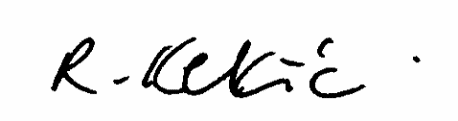 R. Kekić